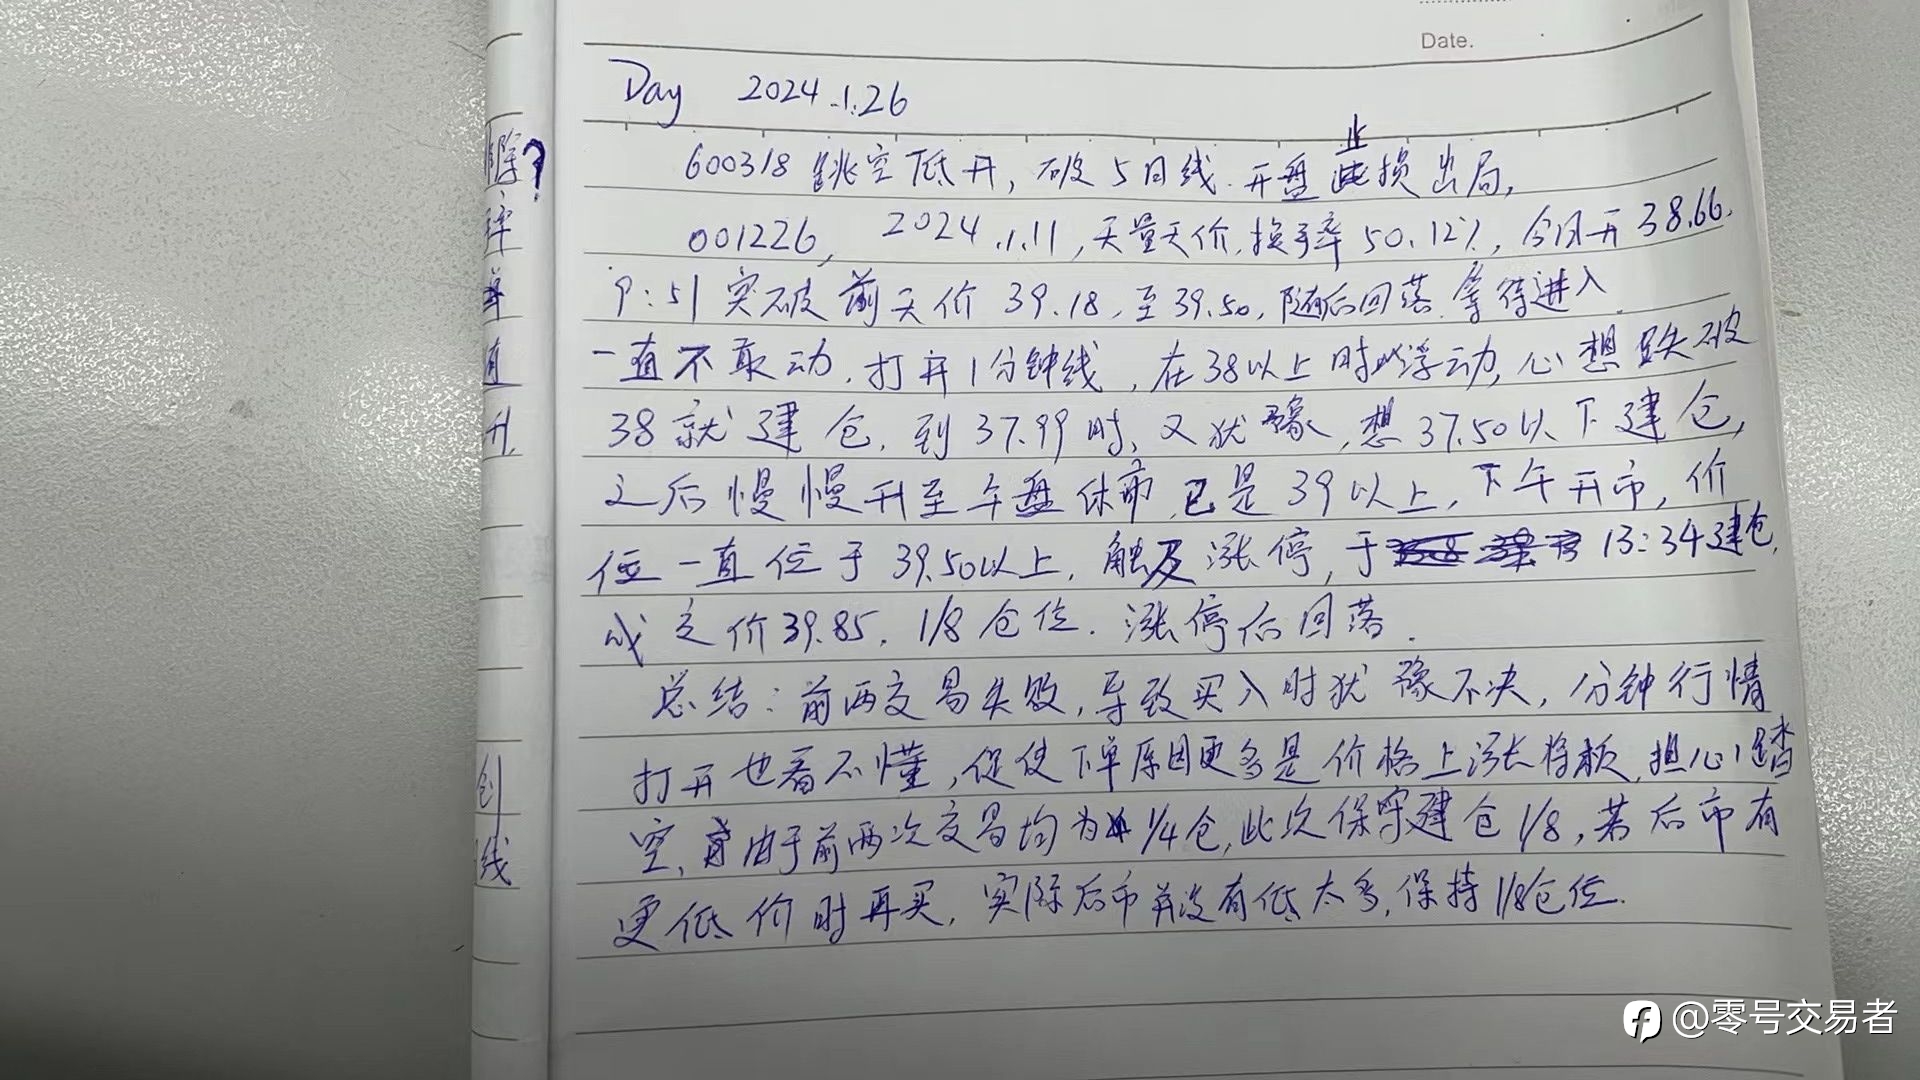 Date.
Day 2024.1.26
600318 跳空低开，破5日线.开盘止损出局，
001226，2024.1.11，天量天价，换手率50.12%，今日开38.66.
9:51突破前天价39.18，至39.50，随后回落.等待进入.
一直不敢动，打开1分钟线，在38以上时以浮动，心想跌破
38就建仓，到37.99时，又犹豫，想37.50以下建仓，
之后慢慢升至午盘休市，已是39以上，下午开市，价
位一直位于39.50以上，触及涨停，于 13:34建仓，
成交价39.85，1/8仓位.涨停后回落.
总结：前两交易失败，导致买入时犹豫不决，分钟行情
打开也看不懂，促使下单原因更多是价格上涨将板，担心踏
空，由于前两次交易均为1/4仓，此次保守建仓1/8，若后市有
更低价时再买，实际后市并没有低太多，保持1/8仓位.
除?
率
单
有
升.
创
线
@零号交易者